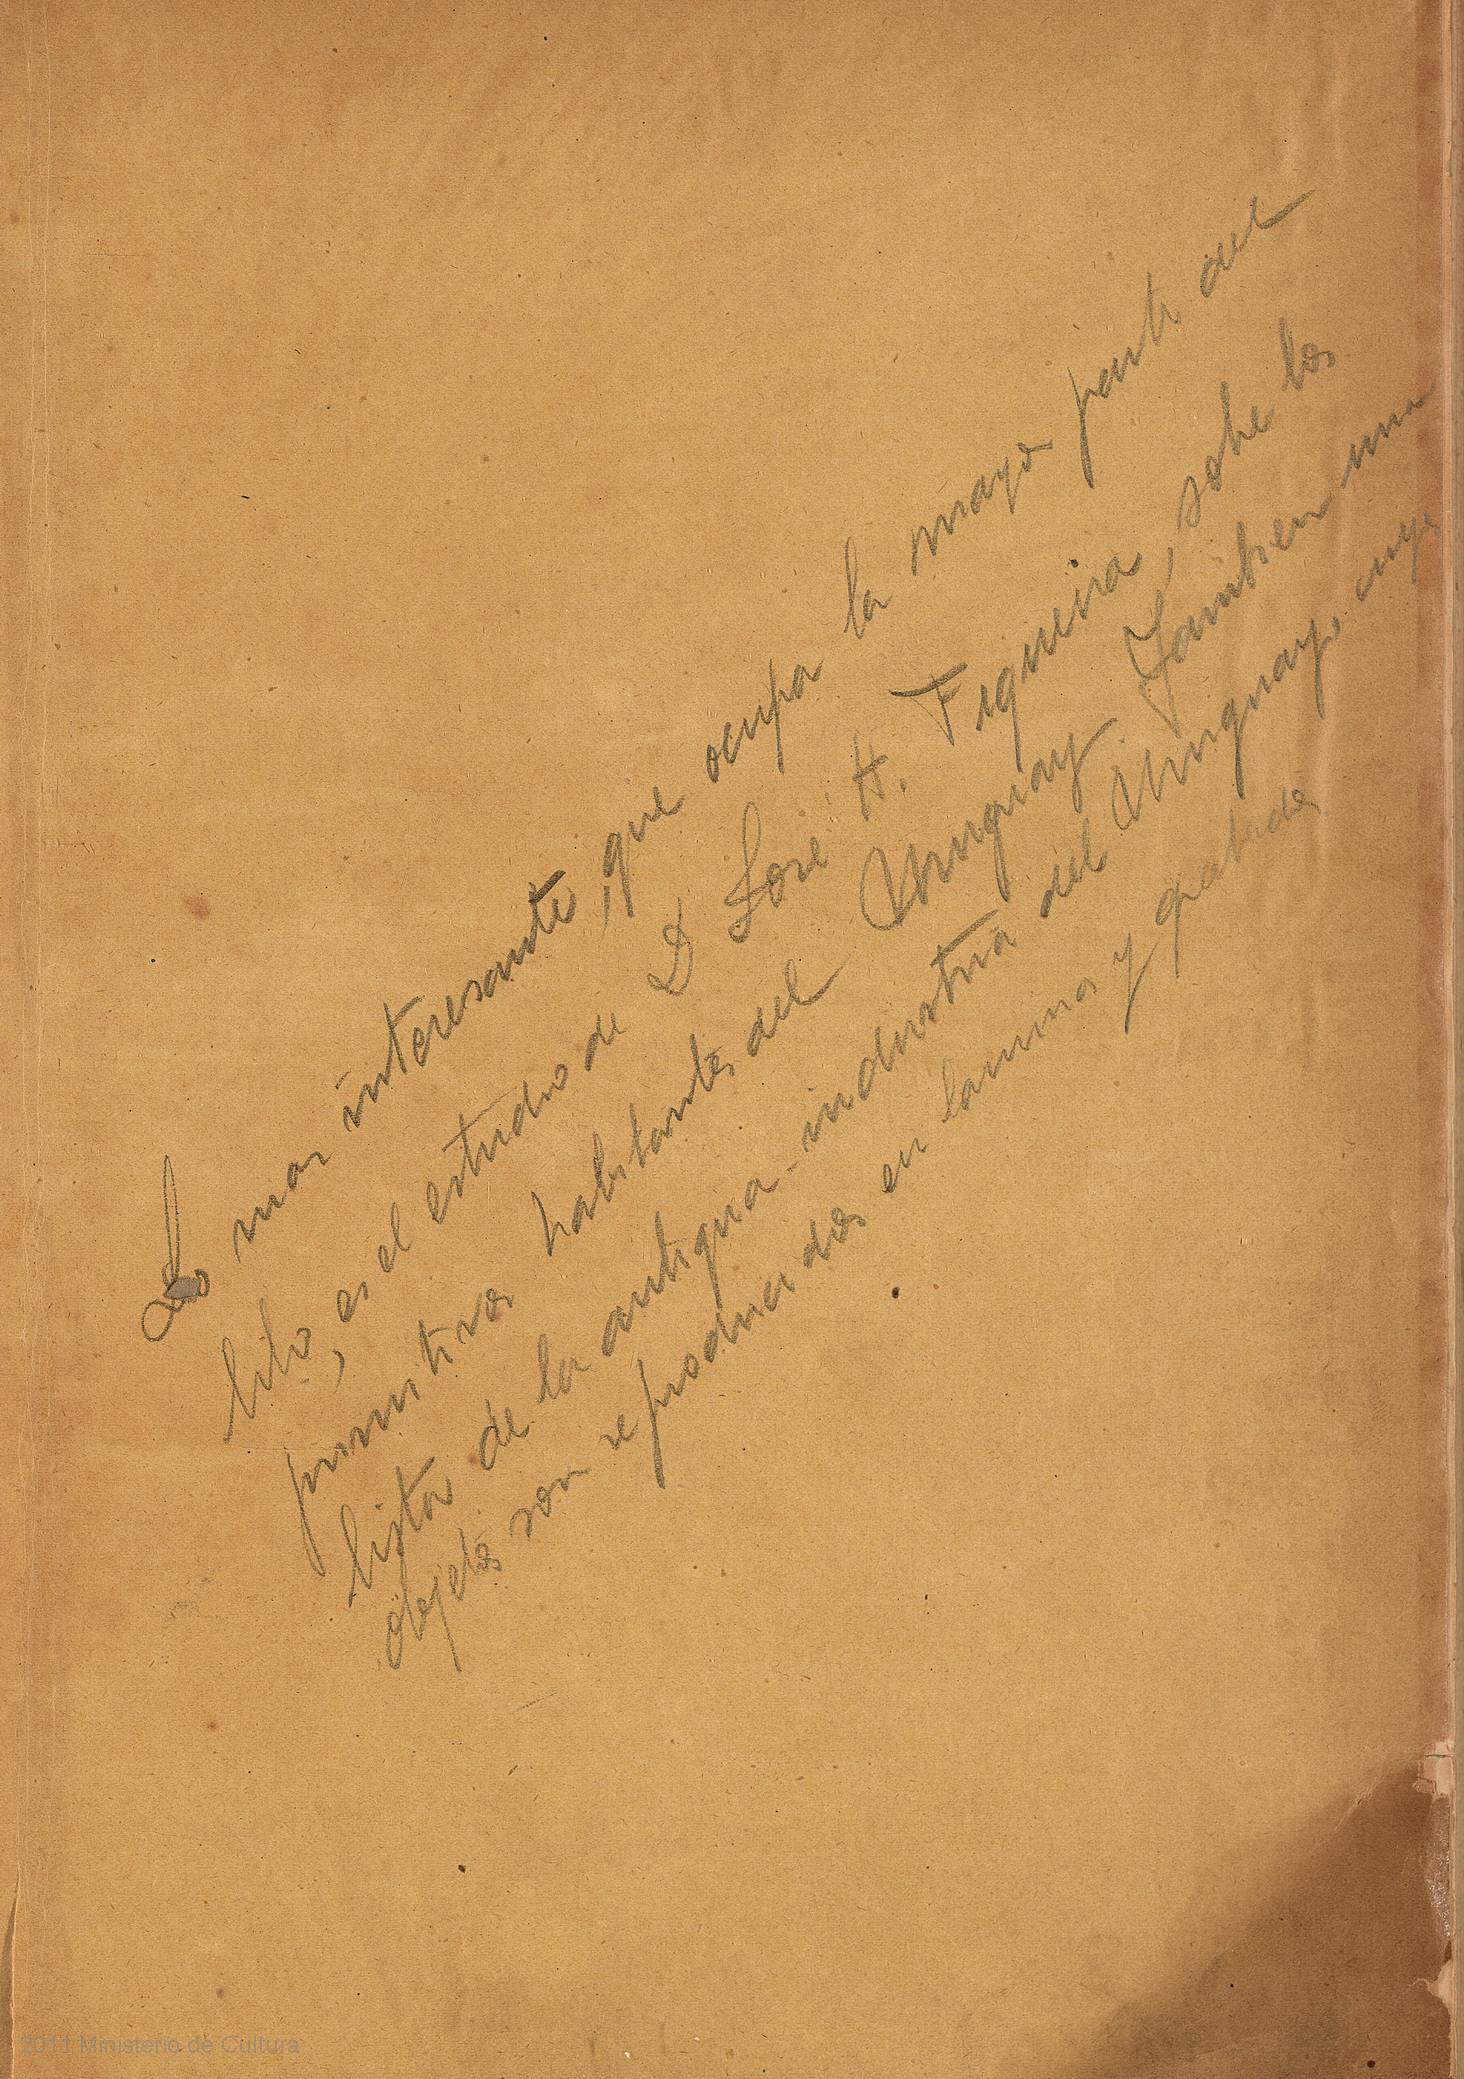 Lo mas interesante, que ocupa la mayor parte del
libro, es el estudio de D José H. Figueira, sobre los
primitivos habitantes del Uruguay También una
lista de la antigua industria del Uruguayo cuyos
objetos son reproducidos en laminas y grabados
2011 Ministerio de Cultura